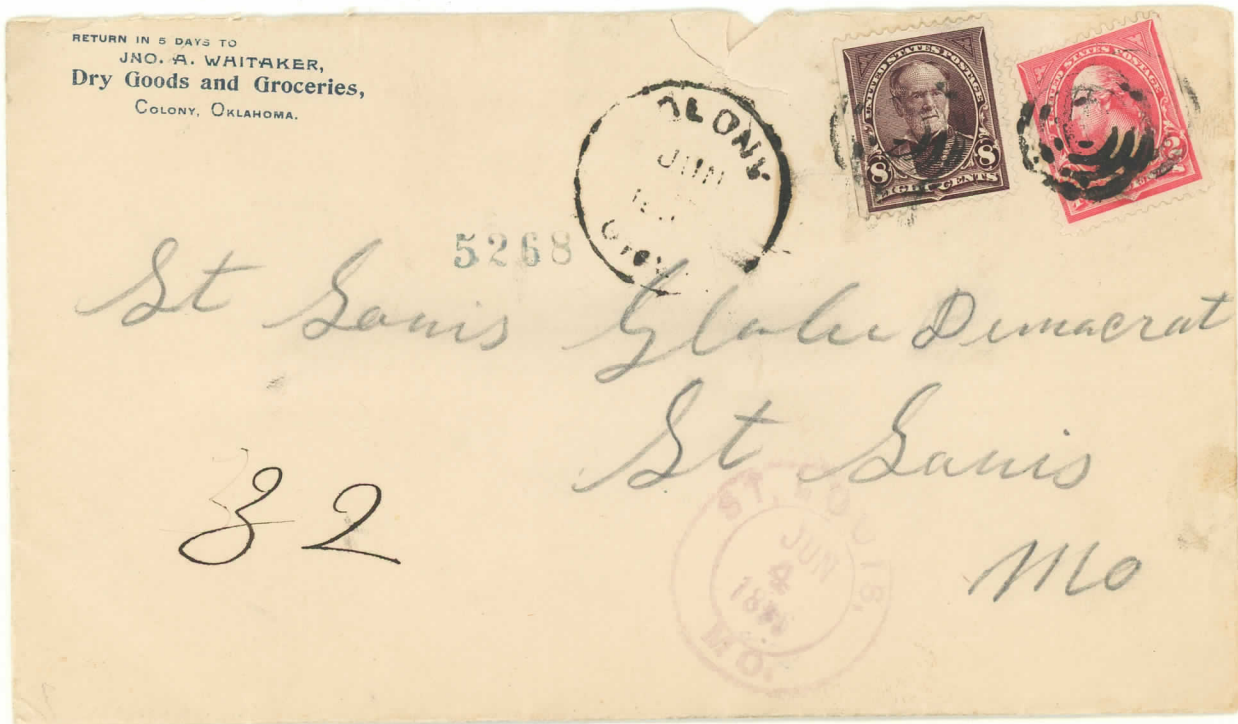 RETURN IN 5 DAYS TO
JNO. A. WHITAKER,
Dry Goods and Groceries,
COLONY, OKLAHOMA.
UNITED STATES POSTAGE
8 8
EIGHT CENTS
UNITED STATES POSTAGE
2
OLONY
JUN
5268
St Louis Globe Democrat
St Louis
Mo
32
ST. LOUIS,
JUN
MO.